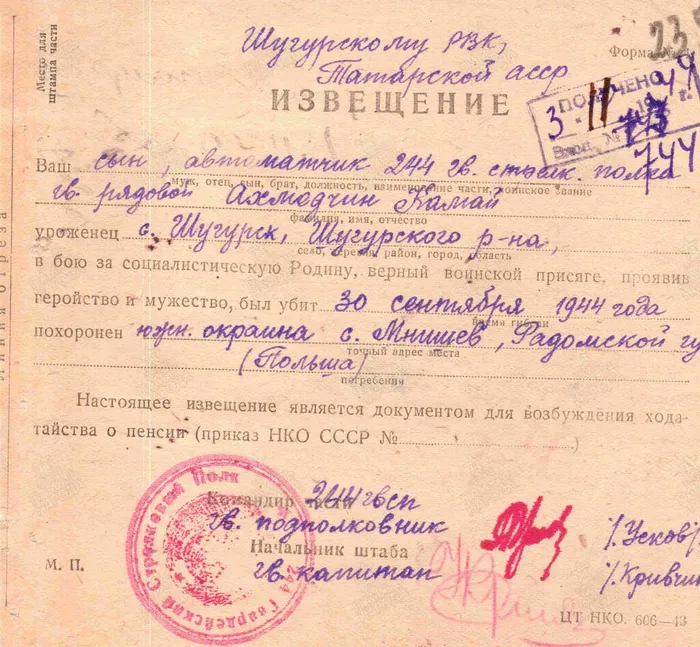 Место для
штампа части
Линия отреза
23
Шугурскому РВК,
Татарской АССР
Форма №
ИЗВЕЩЕНИЕ
ПОЛУЧЕНО
3 - 11 1944 г.
Вход. №
744
Ваш сын, автоматчик 244 гв. стрелк. полка
муж, отец, сын, брат, должность, наименование части, воинское звание
гв. рядовой Ахмодчин Камай
фамилия, имя, отчество
уроженец с. Шугурск, Шугурского р-на,
село, деревня, район, город, область
в бою за социалистическую Родину, верный воинской присяге, проявив
геройство и мужество, был убит 30 сентября 1944 года
время гибели
похоронен южн. окраина с. Мнишев, Радомской гу
точный адрес места
(Польша)
погребения
Настоящее извещение является документом для возбуждения хода-
тайства о пенсии (приказ НКО СССР № )
Командир части 244 гвсп
гв. подполковник /Усков/
Начальник штаба
гв. капитан /Кривчин
М. П.
244 Гвардейский Стрелковый Полк
ЦТ НКО. 606—43